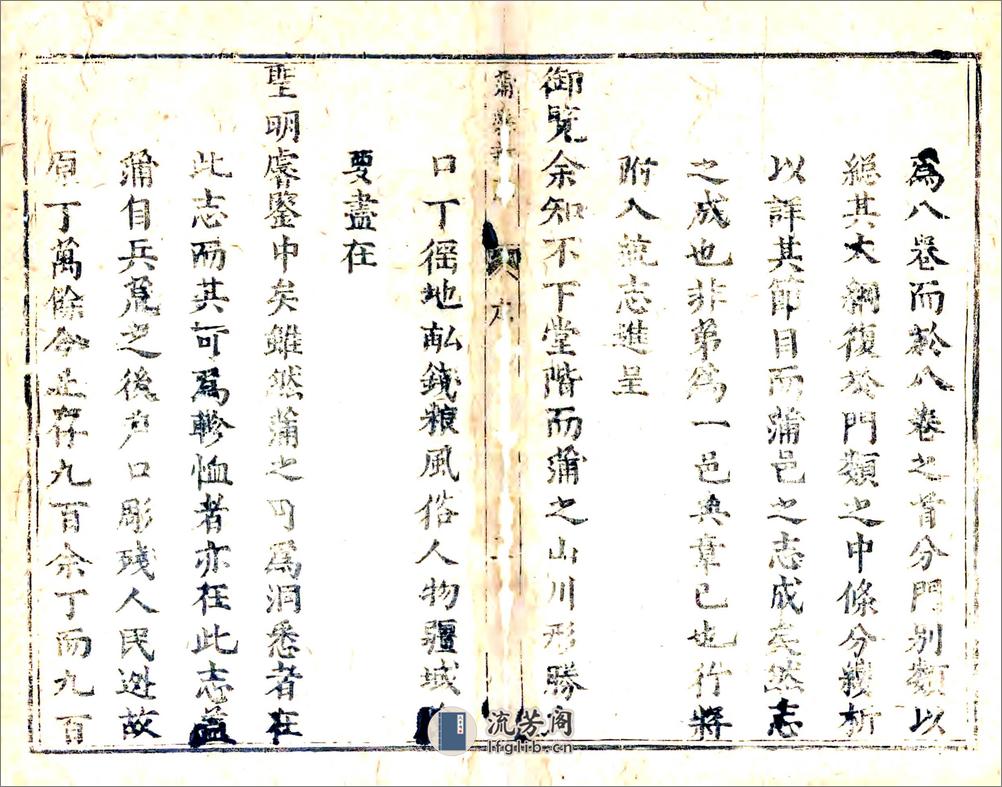 為八卷而於八卷之首分門別類以
總其大綱復於門類之中條分縷析
以詳其節目而蒲邑之志成矣然志
之成也非第為一邑典章已也行將
附入筦志進呈
御覽余知不下堂階而蒲之山川形勝
口丁徭地畝錢粮風俗人物疆域
要盡在
聖明睿鑒中矣雖然蒲之可為洞悉者在
此志而其可為軫恤者亦在此志蓋
蒲自兵荒之後戶口彫殘人民逃故
原丁萬餘今止存九百余丁而九百
流芳阁
lfglib.cn